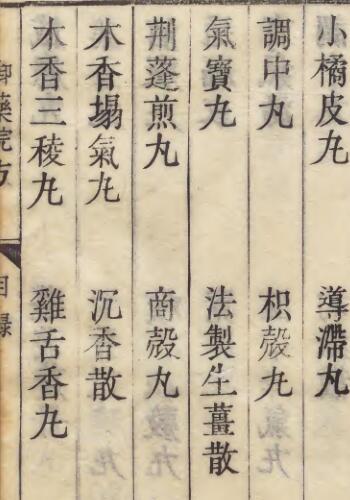 小橘皮丸　導滯丸
調中丸　枳殼丸
氣寶丸　法製生薑散
荆蓬煎丸　商殼丸
木香塌氣丸　沉香散
木香三稜丸　雞舌香丸
御藥院方　目錄